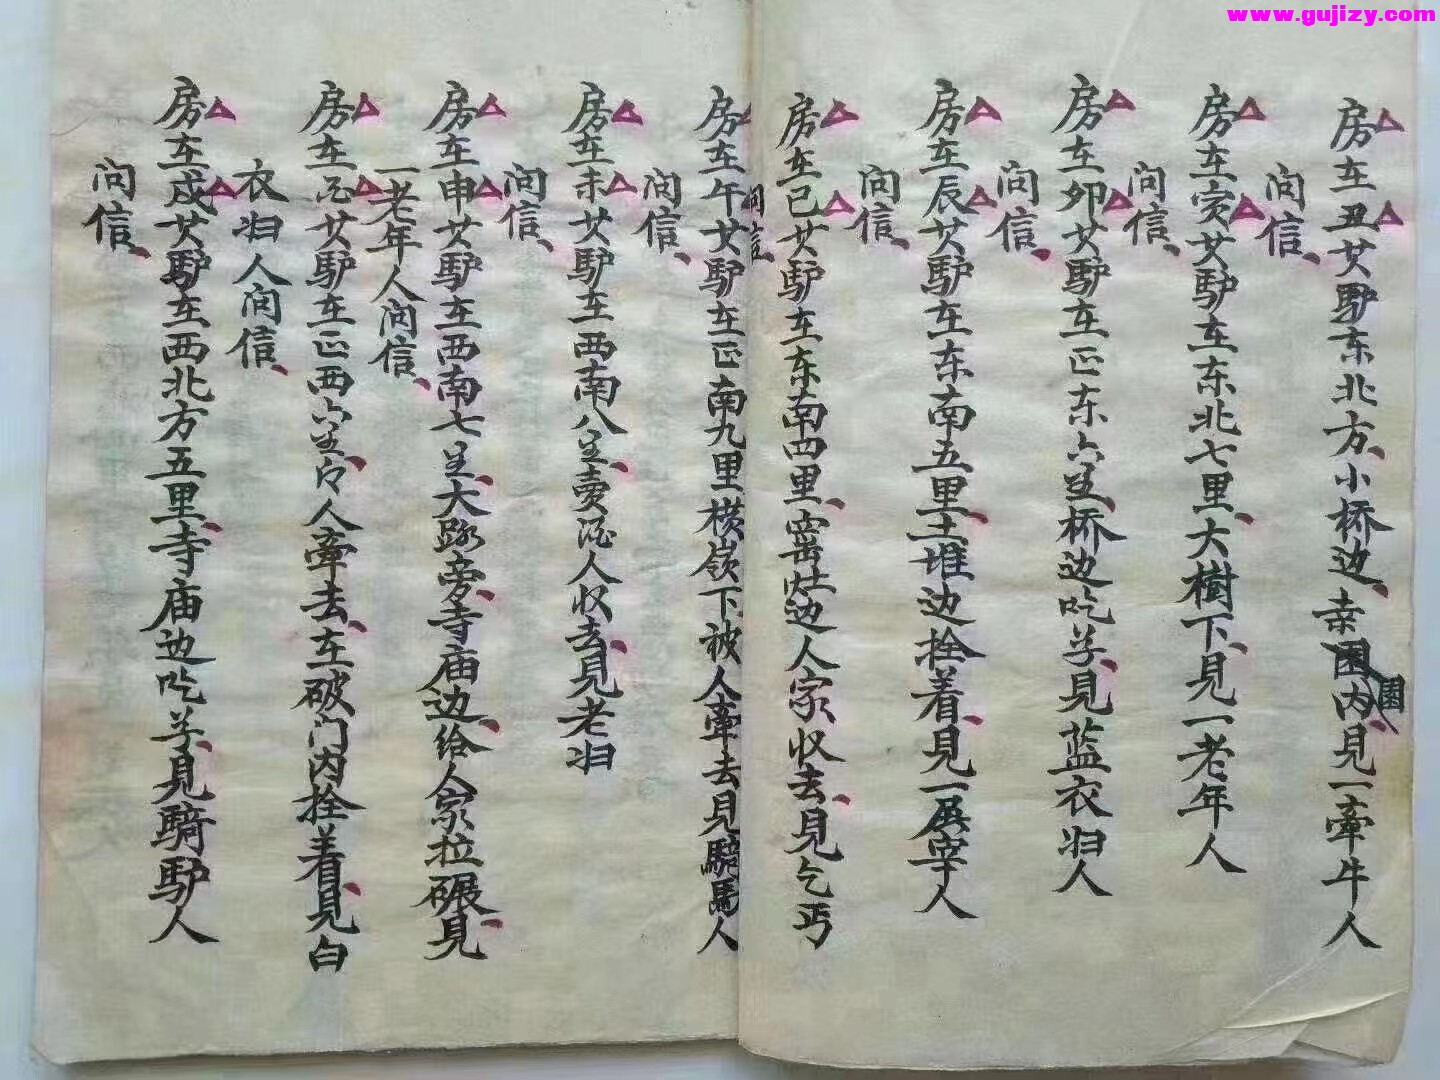 www.gujizy.com
房在丑女驴东北方、小桥边、
园内、见一牵牛人
园
问信、
房在寅女驴在东北七里、大樹下、见一老年人
问信、
房在卯女驴在正东六里、桥边吃草、见蓝衣妇人
问信、
房在辰女驴在东南五里土堆边拴着、见一屠宰人
问信、
房在巳女驴在东南四里、窑灶边人家收去、见乞丐
问信
房在午女驴在正南九里横嶺下被人牵去见騎馬人
问信、
房在未女驴在西南八里、卖酒人收去、见老妇
问信、
房在申女驴在西南七里、大路旁、寺庙边、给人家拉碾、见
一老年人问信、
房在酉女驴在正西六里、人牵去、在破门内拴着、见白
衣妇人问信、
房在戌女驴在西北方五里、寺庙边吃草、见騎驴人
问信、